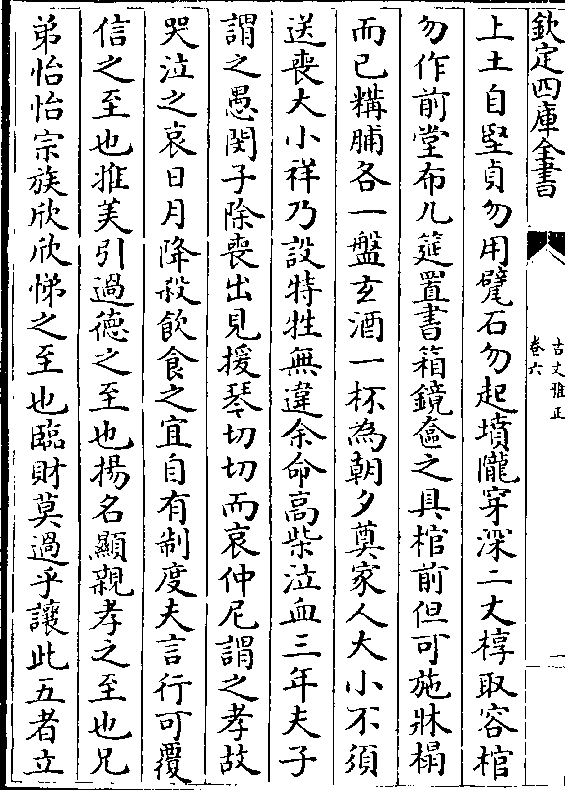 欽定四庫全書
古文雅正
卷六
上土自堅貞勿用甓石勿起墳隴穿深二丈椁取容棺
勿作前堂布几筵置書箱鏡奩之具棺前但可施牀榻
而已糒脯各一盤玄酒一杯為朝夕奠家人大小不須
送喪大小祥乃設特牲無違余命高柴泣血三年夫子
謂之愚閔子除喪出見援琴切切而哀仲尼謂之孝故
哭泣之哀日月降殺飲食之宜自有制度夫言行可覆
信之至也推美引過德之至也揚名顯親孝之至也兄
弟怡怡宗族欣欣悌之至也臨財莫過乎讓此五者立